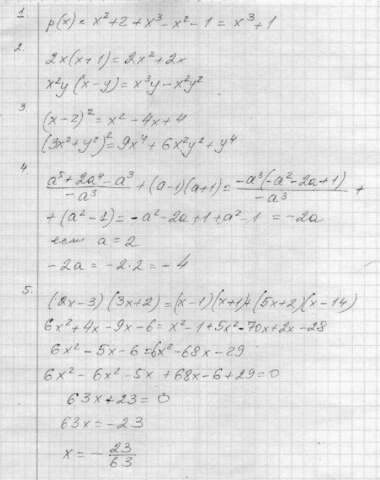 1. p(x) = x² + 2 + x³ - x² - 1 = x³ + 1
2.
2x(x+1) = 2x² + 2x
x²y(x-y) = x³y - x²y²
3.
(x-2)² = x² - 4x + 4
(3x² + y²)² = 9x⁴ + 6x²y² + y⁴
4.
(a⁵ + 2a⁴ - a³)/(-a³) + (a-1)(a+1) = (-a³(-a² - 2a + 1))/(-a³) +
+ (a² - 1) = -a² - 2a + 1 + a² - 1 = -2a
если a = 2
-2a = -2·2 = -4
5.
(2x-3)(3x+2) = (x-1)(x+1) + (5x+2)(x-14)
6x² + 4x - 9x - 6 = x² - 1 + 5x² - 70x + 2x - 28
6x² - 5x - 6 = 6x² - 68x - 29
6x² - 6x² - 5x + 68x - 6 + 29 = 0
63x + 23 = 0
63x = -23
x = - 23/63